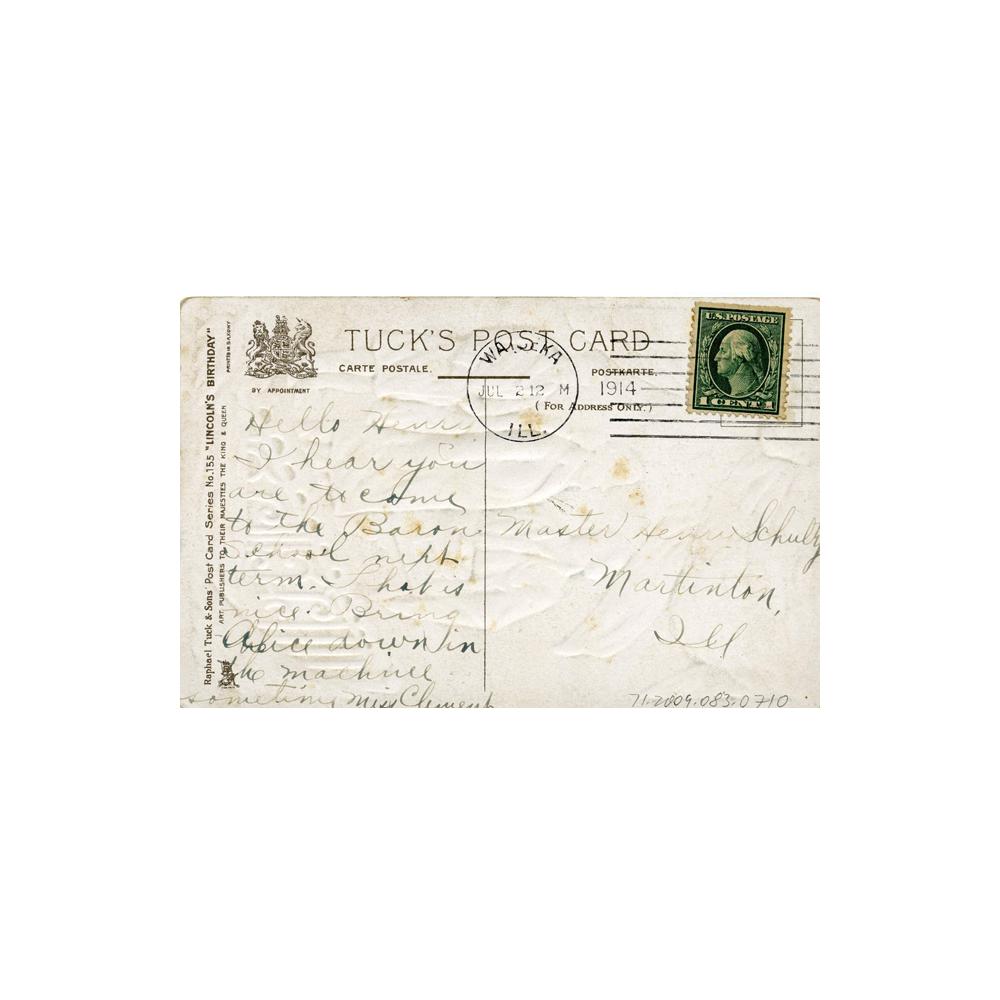 TUCK'S POST CARD
CARTE POSTALE.
POSTKARTE.
(FOR ADDRESS ONLY.)
BY APPOINTMENT
Raphael Tuck & Sons' Post Card Series No. 155 "LINCOLN'S BIRTHDAY"
ART PUBLISHERS TO THEIR MAJESTIES THE KING & QUEEN
PRINTED IN SAXONY
WATSEKA
JUL 2 12 M
1914
ILL.
U.S. POSTAGE
1 CENT 1
Hello Henri
I hear you
are to come
to the Baron
School next
term. That is
nice. Bring
Alice down in
the machine
sometime Miss Clement
Master Henri Schultz
Martinton,
Ill
71.2009.083.0710